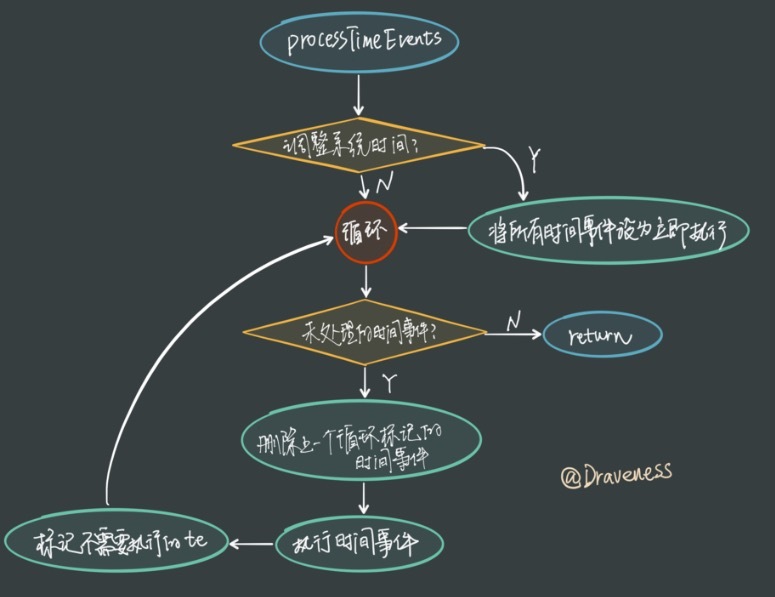 processTimeEvents
调整系统时间?
Y
N
循环
将所有时间事件设为立即执行
未处理的时间事件?
N
return
Y
删除上一个循环标记的
时间事件
@Draveness
标记不需要执行的te
执行时间事件